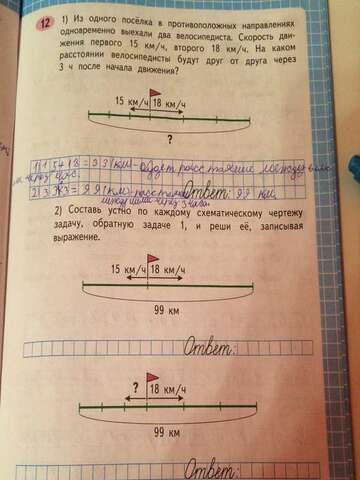 12
1) Из одного посёлка в противоположных направлениях
одновременно выехали два велосипедиста. Скорость дви-
жения первого 15 км/ч, второго 18 км/ч. На каком
расстоянии велосипедисты будут друг от друга через
3 ч после начала движения?
15 км/ч 18 км/ч
?
1) 15+18=33(км)-будет расстояние между
через час.
2) 33·3=99(км)-расстояние Ответ: 99 км.
через 3 часа.
2) Составь устно по каждому схематическому чертежу
задачу, обратную задаче 1, и реши её, записывая
выражение.
15 км/ч 18 км/ч
99 км
Ответ:
? 18 км/ч
99 км
Ответ: